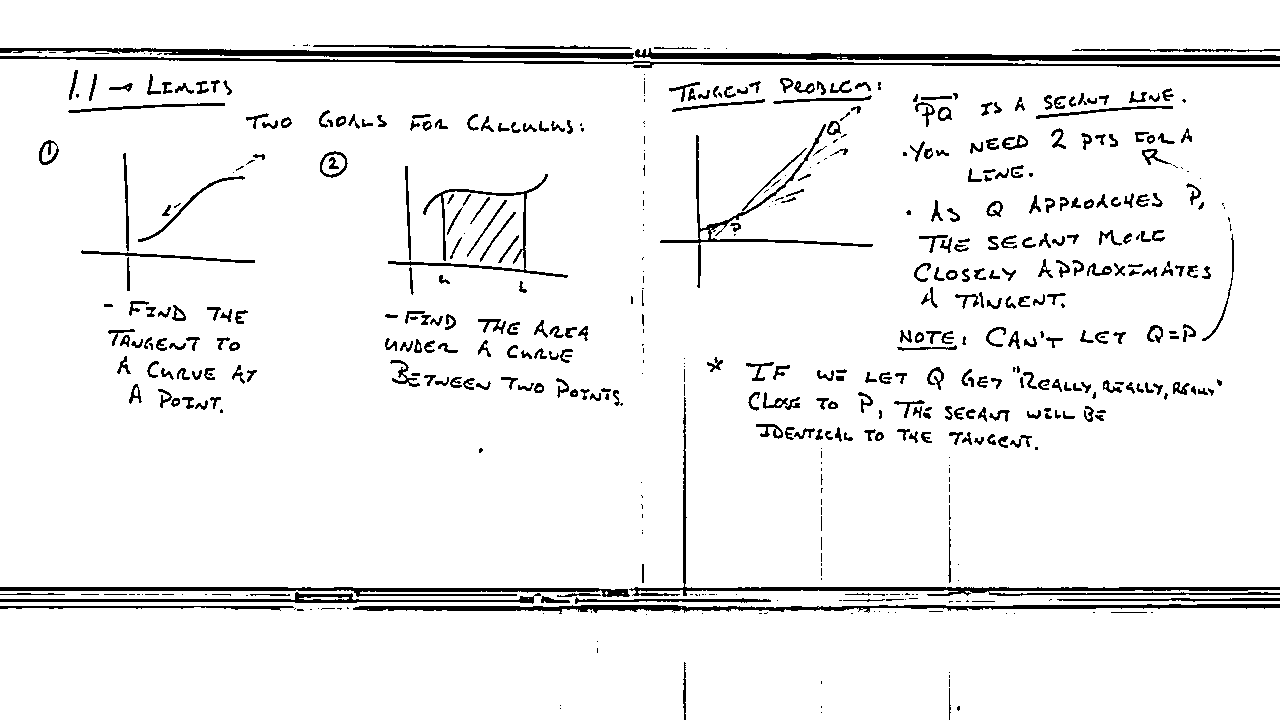 1.1 → LIMITS
TWO GOALS FOR CALCULUS:
①
②
a b
- FIND THE
TANGENT TO
A CURVE AT
A POINT.
- FIND THE AREA
UNDER A CURVE
BETWEEN TWO POINTS.
TANGENT PROBLEM:
Q
P
"PQ" IS A SECANT LINE.
· YOU NEED 2 PTS FOR A
LINE.
· AS Q APPROACHES P,
THE SECANT MORE
CLOSELY APPROXIMATES
A TANGENT.
NOTE: CAN'T LET Q=P
* IF WE LET Q GET "REALLY, REALLY, REALLY"
CLOSE TO P, THE SECANT WILL BE
IDENTICAL TO THE TANGENT.